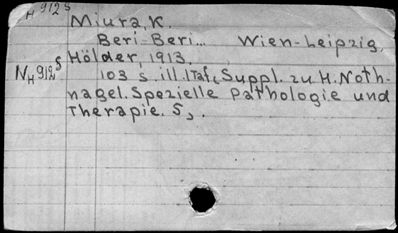 H 912 s
Miura, K.
Beri-Beri... Wien-Leipzig,
Hölder, 1913.
NH 912 s
103 s. ill. 1 Taf. Suppl. zu H. Noth-
nagel. Spezielle Pathologie und
Therapie. 5,.